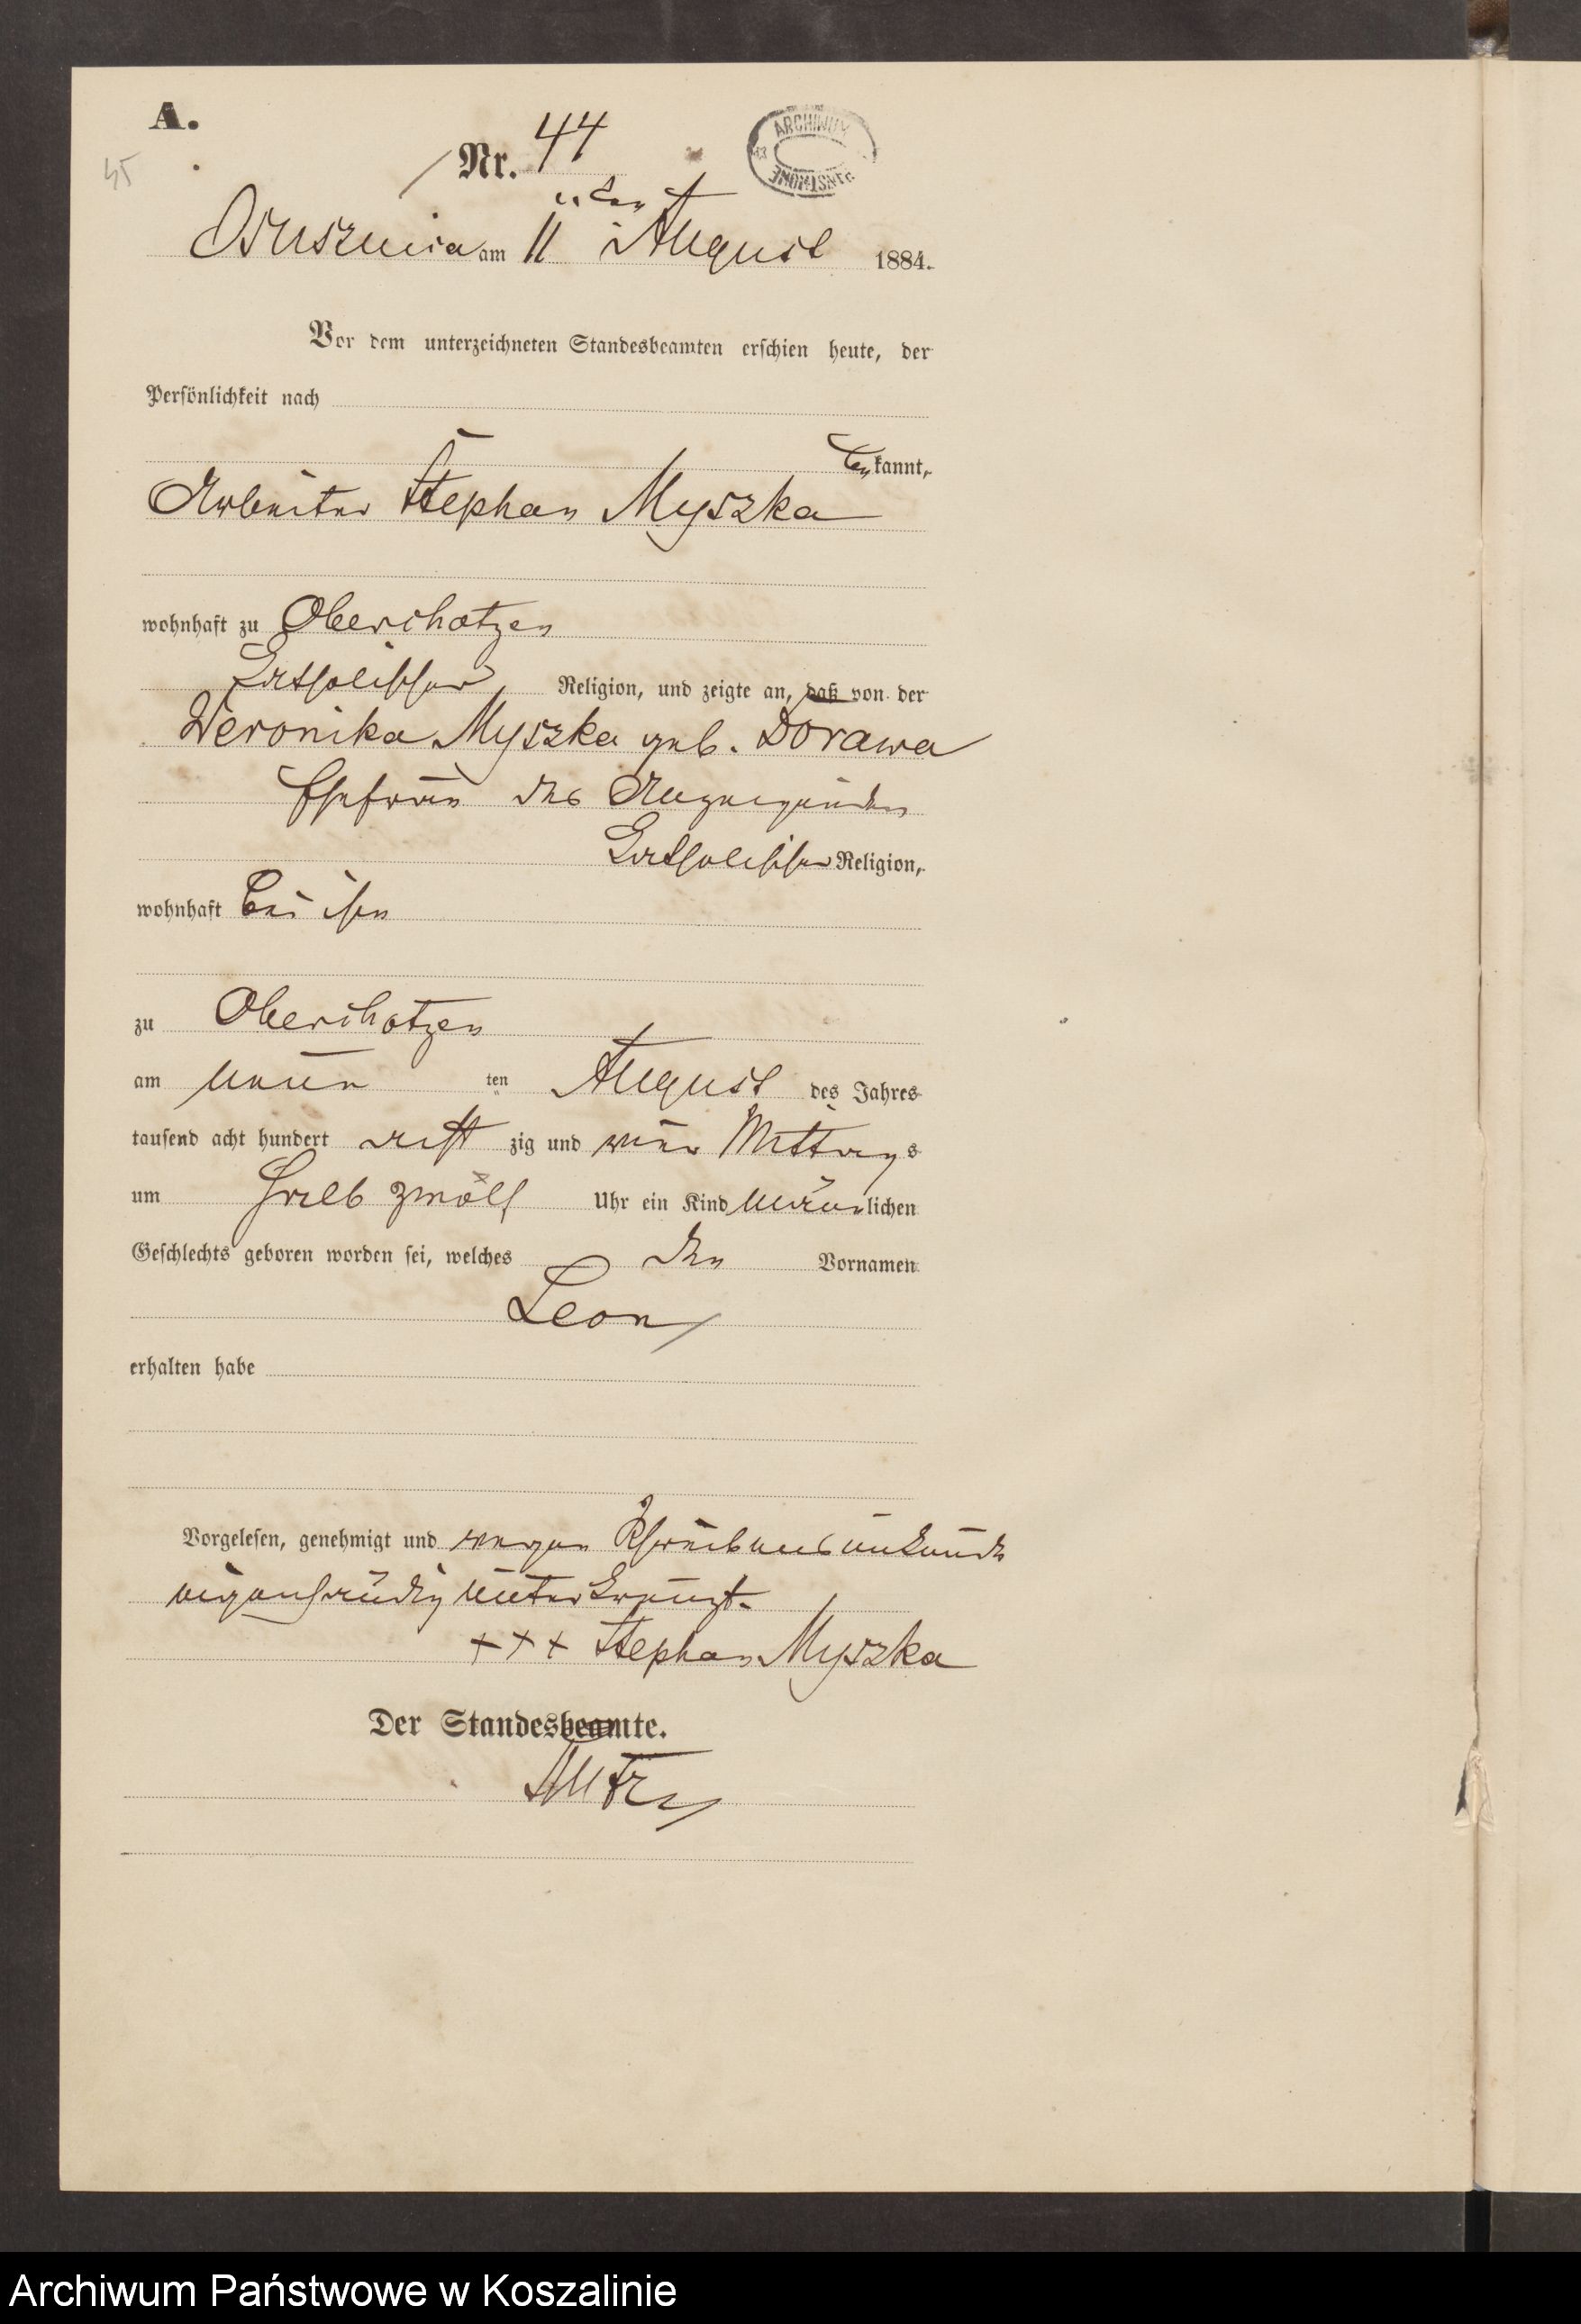 A.
45
Nr. 44
ARCHIWUM PAŃSTWOWE
Osusznica am 11 ten August 1884.
Vor dem unterzeichneten Standesbeamten erschien heute, der
Persönlichkeit nach
bekannt,
Arbeiter Stephan Myszka
wohnhaft zu Oberschotzen
katholischer Religion, und zeigte an, daß von der
Weronika Myszka geb. Dorawa
Ehefrau des Anzeigenden
katholischer Religion,
wohnhaft bei ihm
zu Oberschotzen
am neun ten August des Jahres
tausend acht hundert acht zig und vier Mittags
um halb zwölf Uhr ein Kind männlichen
Geschlechts geboren worden sei, welches den Vornamen
Leon
erhalten habe
Vorgelesen, genehmigt und wegen Schreibensunkunde
eigenhändig unterkreuzt.
+++ Stephan Myszka
Der Standesbeamte.
Archiwum Państwowe w Koszalinie